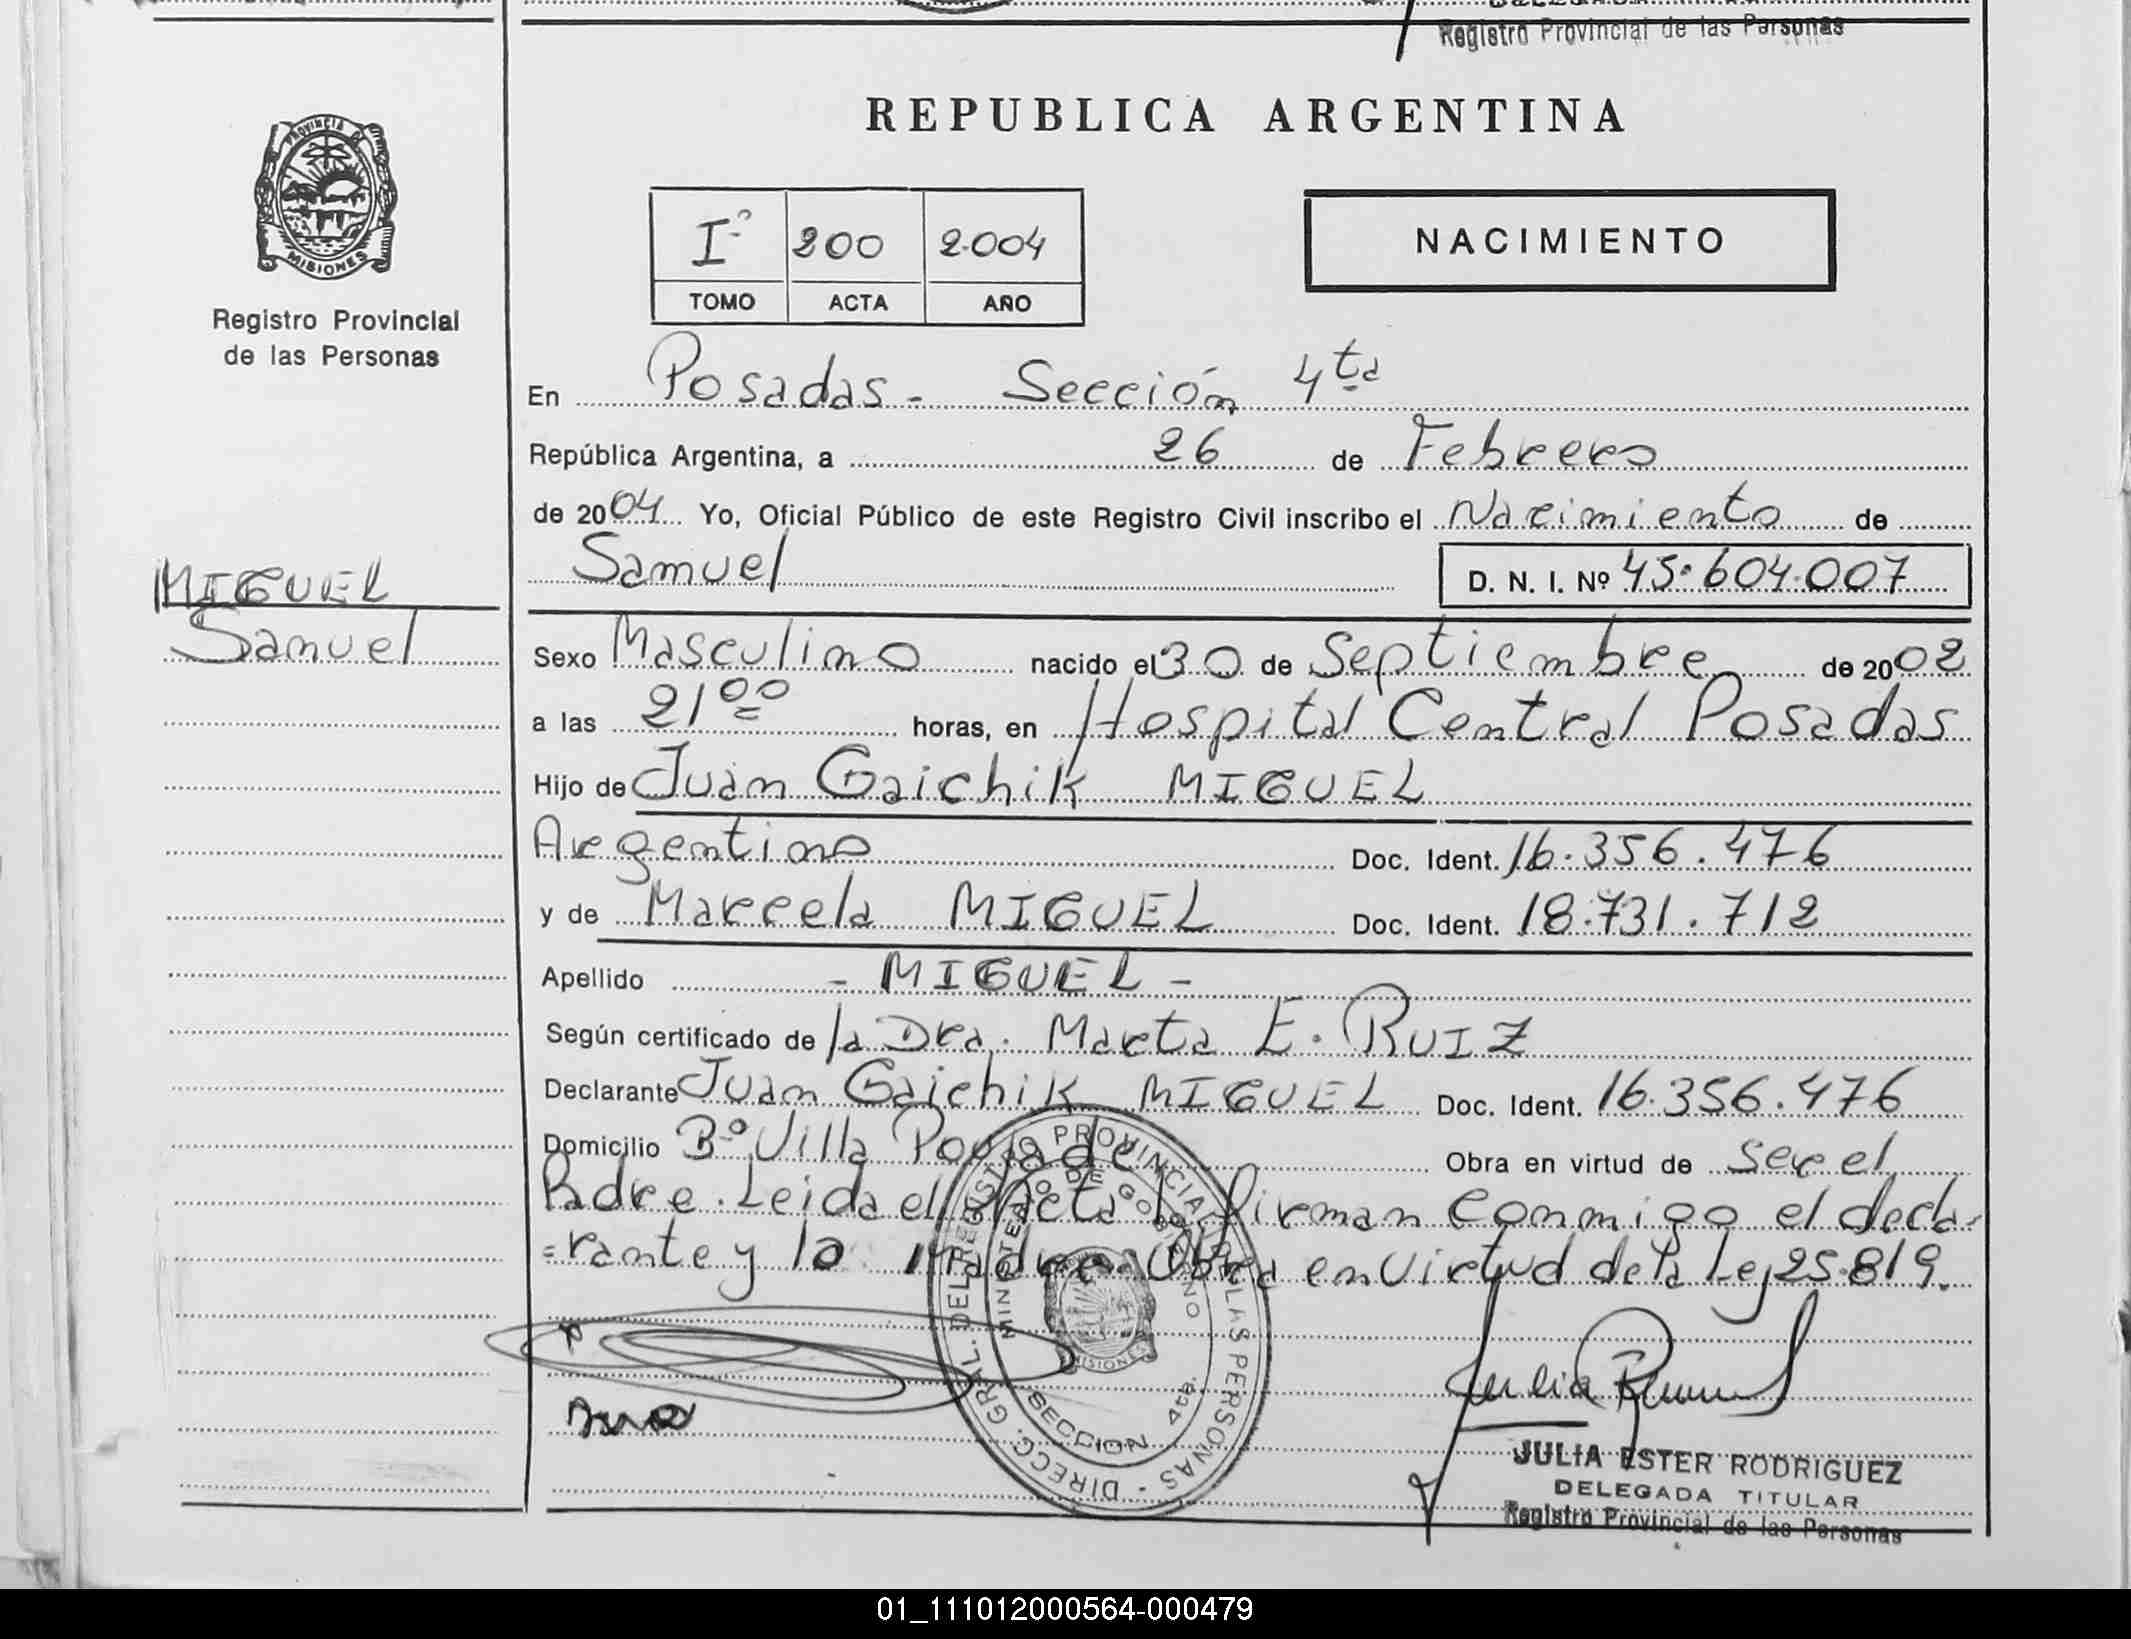 Registro Provincial de las Personas
REPUBLICA ARGENTINA
PROVINCIA DE
MISIONES
Iº 200 2.004
TOMO ACTA AÑO
NACIMIENTO
Registro Provincial
de las Personas
En Posadas - Sección 4ta
República Argentina, a 26 de Febrero
de 2004 Yo, Oficial Público de este Registro Civil inscribo el Nacimiento de
Samuel D. N. I. Nº 45.604.007
MIGUEL
Samuel
Sexo Masculino nacido el 30 de Septiembre de 2002
a las 21 00 horas, en Hospital Central Posadas
Hijo de Juan Gaichik MIGUEL
Argentino Doc. Ident. 16.356.476
y de Marcela MIGUEL Doc. Ident. 18.731.712
Apellido - MIGUEL -
Según certificado de la Dra. Marta E. RUIZ
Declarante Juan Gaichik MIGUEL Doc. Ident. 16.356.476
Domicilio Bº Villa Poujade Obra en virtud de ser el
Padre. Leida el Acta la firman conmigo el decla-
=rante y la madre. Obra en virtud de la Ley 25.819.
DIRECC. GRAL. DEL REGISTRO PROVINCIAL DE LAS PERSONAS -
MINISTERIO DE GOBIERNO
MISIONES
SECCION 4ta.
JULIA ESTER RODRIGUEZ
DELEGADA TITULAR
Registro Provincial de las Personas
01_111012000564-000479